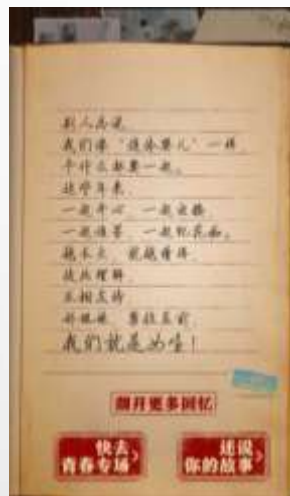 别人老说
我们像“连体婴儿”一样
干什么都要一起。
这些年来
一起开心 一起
一起 一起
越长大 就越懂得
彼此理解
互相支持
好姐妹 勇往直前
我们就是如
翻开更多回忆
快去
青春专场
述说
你的故事